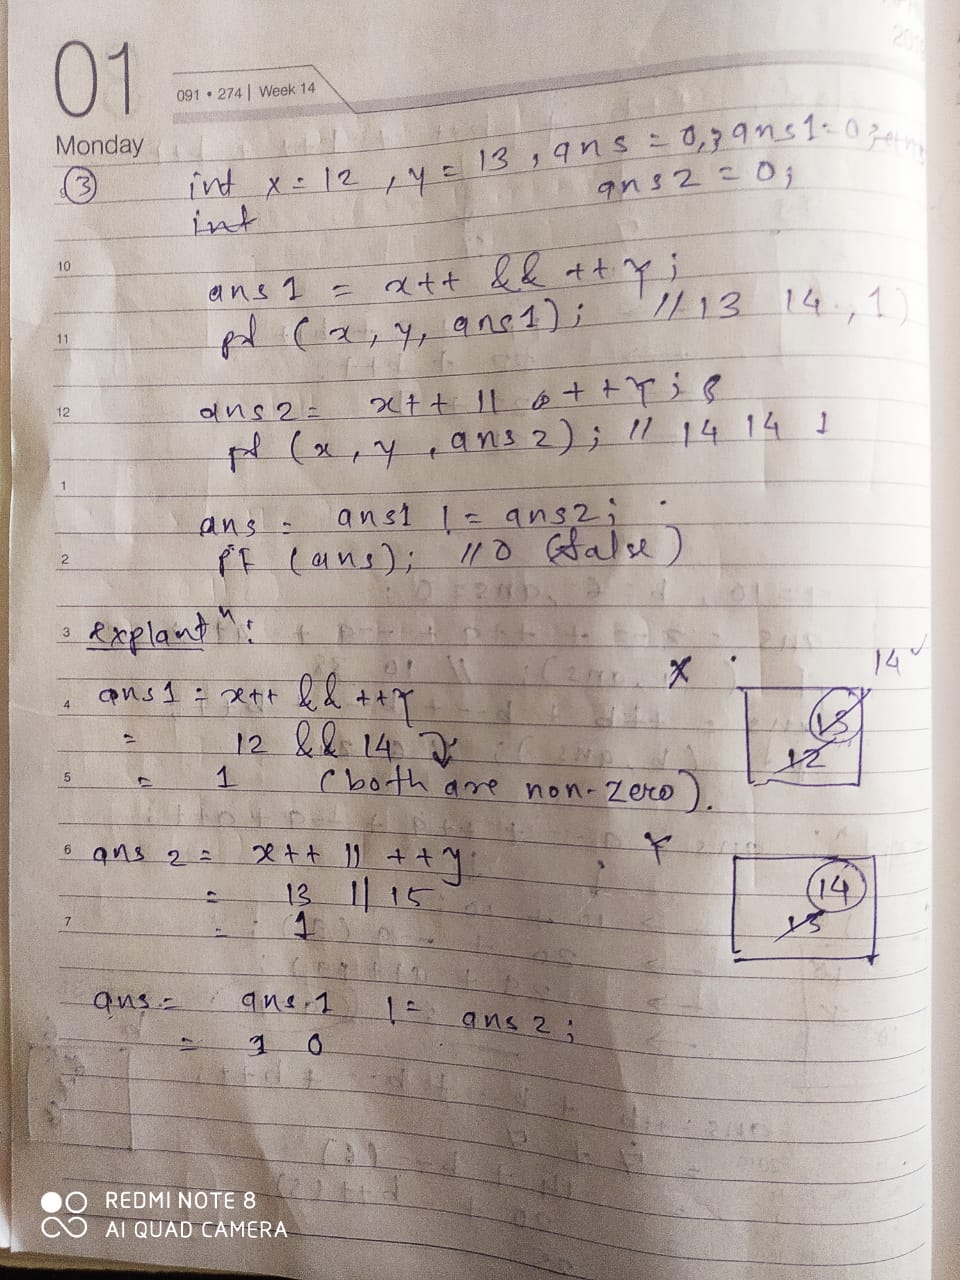 01
091 • 274 | Week 14
Monday
③ int x = 12 , y = 13 , ans = 0, ans1 = 0;
ans2 = 0;
int
10
ans1 = x++ && ++y;
11
pf (x, y, ans1); // 13 14 , 1)
12
ans2 = x++ || ++y;
pf (x, y, ans2); // 14 14 1
1
ans = ans1 != ans2;
2
pf (ans); // 0 (false)
3 explantⁿ:
X 14 ✓
4 ans1 = x++ && ++y
13
= 12 && 14
12
5 = 1 (both are non-zero).
6 ans 2 = x++ || ++y
Y
14
= 13 || 15
13
7
= 1
ans = ans1 != ans2;
= 0
REDMI NOTE 8
AI QUAD CAMERA